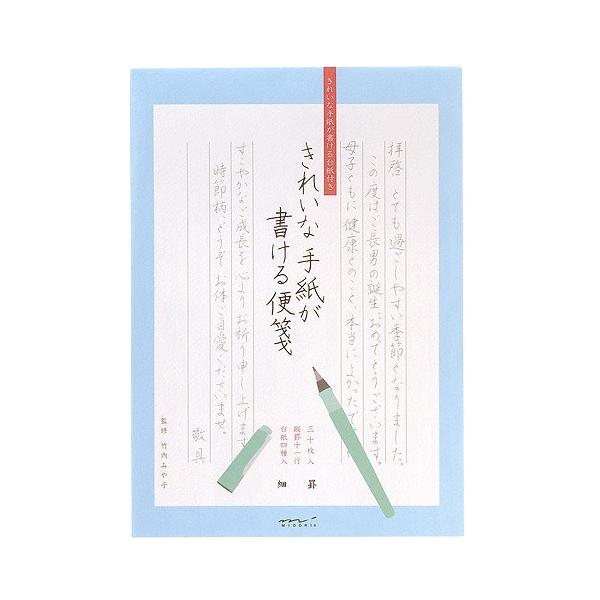 きれいな手紙が書ける台紙付き
拝啓 とても過ごしやすい季節となりました。
この度はご長男の誕生、おめでとうございます。
母子ともに健康とのこと、本当によかったです
きれいな手紙が
書ける便箋
すこやかなご成長を心よりお祈り申し上げます
時節柄、どうぞお体ご自愛くださいませ。
敬具
三十枚入
縦罫十一行
台紙四種入
細罫
監修 竹内みや子
MIDORI®